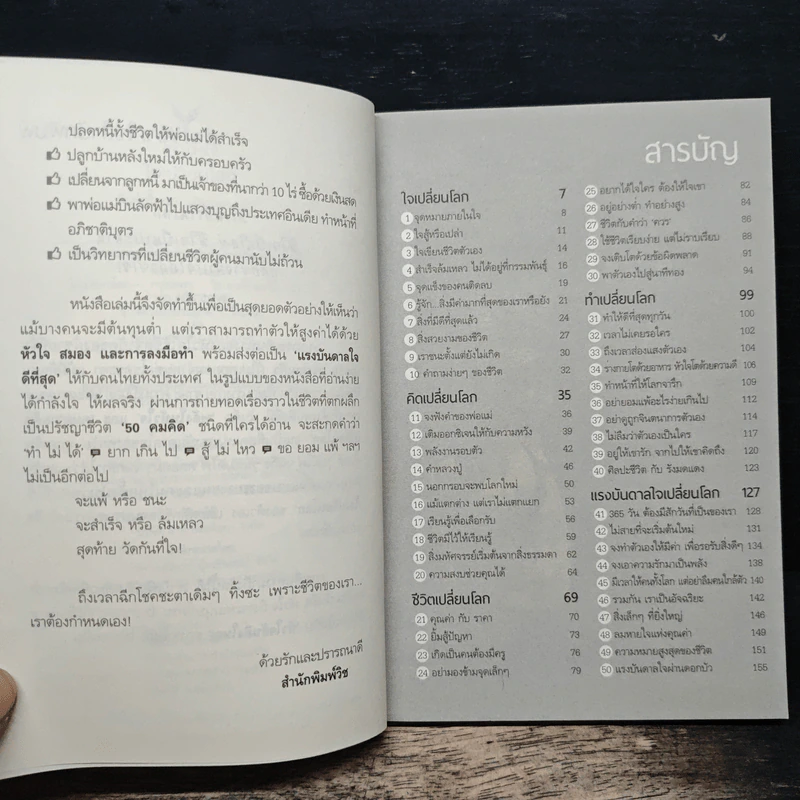 ปลดหนี้ทั้งชีวิตให้พ่อแม่ได้สำเร็จ
ปลูกบ้านหลังใหม่ให้กับครอบครัว
เปลี่ยนจากลูกหนี้ มาเป็นเจ้าของที่นากว่า 10 ไร่ ซื้อด้วยเงินสด
พาพ่อแม่บินลัดฟ้าไปแสวงบุญถึงประเทศอินเดีย ทำหน้าที่
อภิชาตบุตร
เป็นวิทยากรที่เปลี่ยนชีวิตผู้คนมานับไม่ถ้วน
หนังสือเล่มนี้จึงจัดทำขึ้นเพื่อเป็นสุดยอดตัวอย่างให้เห็นว่า
แม้บางคนจะมีต้นทุนต่ำ แต่เราสามารถทำตัวให้สูงค่าได้ด้วย
หัวใจ สมอง และการลงมือทำ พร้อมส่งต่อเป็น 'แรงบันดาลใจ
ดีที่สุด' ให้กับคนไทยทั้งประเทศ ในรูปแบบของหนังสือที่อ่านง่าย
ได้กำลังใจ ให้ผลจริง ผ่านการถ่ายทอดเรื่องราวในชีวิตที่ตกผลึก
เป็นปรัชญาชีวิต '50 คมคิด' ชนิดที่ใครได้อ่าน จะสะกดคำว่า
'ทำ ไม่ ได้' ยาก เกิน ไป สู้ ไม่ ไหว ขอ ยอม แพ้ ฯลฯ
ไม่เป็นอีกต่อไป
จะแพ้ หรือ ชนะ
จะสำเร็จ หรือ ล้มเหลว
สุดท้าย วัดกันที่ใจ!
ถึงเวลาฉีกโชคชะตาเดิมๆ ทิ้งซะ เพราะชีวิตของเรา...
เราต้องกำหนดเอง!
ด้วยรักและปรารถนาดี
สำนักพิมพ์วิช
สารบัญ
ใจเปลี่ยนโลก 7
1 จุดหมายภายในใจ 8
2 ใจสู้หรือเปล่า 11
3 ใจเขียนชีวิตตัวเอง 14
4 สำเร็จล้มเหลว ไม่ได้อยู่ที่กรรมพันธุ์ 16
5 จุดแข็งของคนติดลบ 19
6 รู้จัก...สิ่งมีค่ามากที่สุดของเราหรือยัง 21
7 สิ่งที่มีดีที่สุดแล้ว 24
8 สิ่งสวยงามของชีวิต 27
9 เราชนะตั้งแต่ยังไม่เกิด 30
10 คำถามง่ายๆ ของชีวิต 32
คิดเปลี่ยนโลก 35
11 จงฟังคำของพ่อแม่ 36
12 เติมออกซิเจนให้กับความหวัง 39
13 พลังงานรอบตัว 42
14 คำหลวงปู่ 46
15 นอกกรอบจะพบโลกใหม่ 50
16 แม้แตกต่าง แต่เราไม่แตกแยก 53
17 เรียนรู้เพื่อเลือกรับ 56
18 ชีวิตมีไว้ให้เรียนรู้ 59
19 สิ่งมหัศจรรย์เริ่มต้นจากสิ่งธรรมดา 62
20 ความสงบช่วยคุณได้ 64
ชีวิตเปลี่ยนโลก 69
21 คุณค่า กับ ราคา 70
22 ยิ้มสู้ปัญหา 73
23 เกิดเป็นคนต้องมีครู 76
24 อย่ามองข้ามจุดเล็กๆ 79
25 อยากได้ใจใคร ต้องให้ใจเขา 82
26 อยู่อย่างต่ำ ทำอย่างสูง 84
27 ชีวิตกับคำว่า 'ควร' 86
28 ใช้ชีวิตเรียบง่าย แต่ไม่ราบเรียบ 88
29 จงเติบโตด้วยข้อผิดพลาด 91
30 พาตัวเองไปสู่นาทีทอง 94
ทำเปลี่ยนโลก 99
31 ทำให้ดีที่สุดทุกวัน 100
32 เวลาไม่เคยรอใคร 102
33 ถึงเวลาส่องแสงตัวเอง 104
34 ร่างกายโตด้วยอาหาร หัวใจโตด้วยความดี 106
35 ทำหน้าที่ให้โลกจารึก 109
36 อย่ายอมแพ้อะไรง่ายเกินไป 112
37 อย่าดูถูกจินตนาการตัวเอง 114
38 ไม่ลืมว่าตัวเองเป็นใคร 117
39 อยู่ให้เขารัก จากไปให้เขาคิดถึง 120
40 ศิลปะชีวิต กับ รังมดแดง 123
แรงบันดาลใจเปลี่ยนโลก 127
41 365 วัน ต้องมีสักวันที่เป็นของเรา 128
42 ไม่สายที่จะเริ่มต้นใหม่ 131
43 จงทำตัวเองให้มีค่า เพื่อรอรับสิ่งดีๆ 134
44 จงเอาความรักมาเป็นพลัง 138
45 มีเวลาให้คนทั้งโลก แต่อย่าลืมคนใกล้ตัว 140
46 รวมกัน เราเป็นอัจฉริยะ 142
47 สิ่งเล็กๆ ที่ยิ่งใหญ่ 146
48 ลมหายใจแห่งคุณค่า 149
49 ความหมายสูงสุดของชีวิต 151
50 แรงบันดาลใจผ่านดอกบัว 155